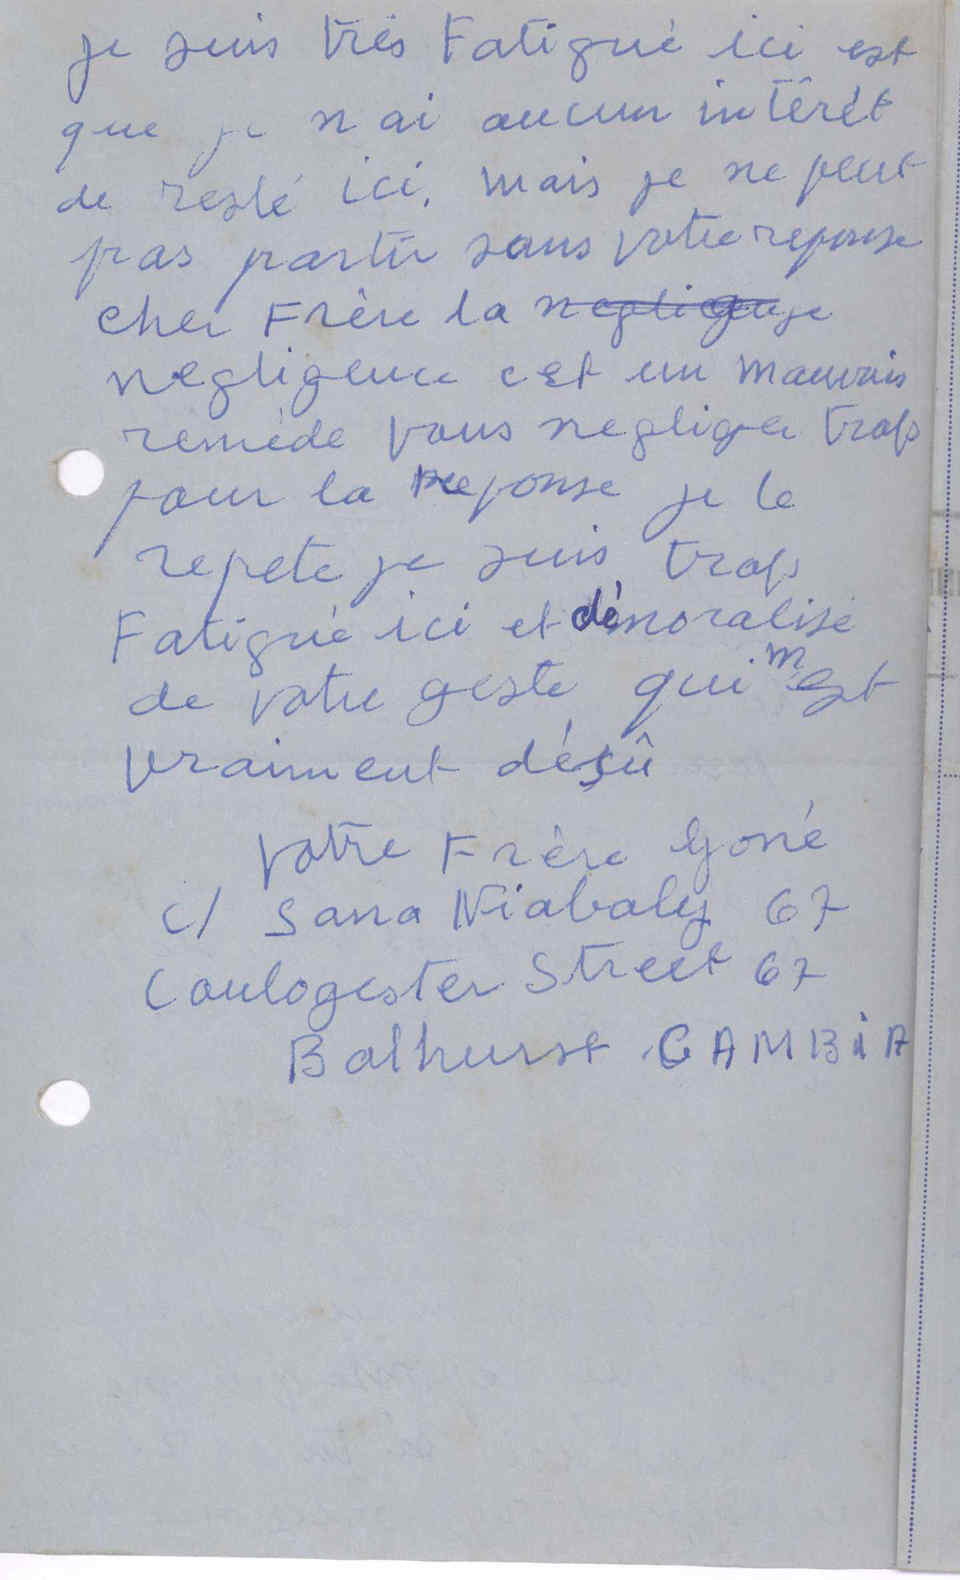 je suis très Fatigué ici est
que je n ai aucun intêrét
de resté ici. mais je ne peut
pas partir sans votre reponse
cher Frère la negligense
negligence c est un mauvais
remède vous negliger trops
pour la reponse je le
repete je suis trops
Fatigué ici et démoralisé
de votre geste qui m est
vraiment déçû
votre Frère Goné
c/ Sana Niabaly 67
Coulogester Street 67
Bathurst GAMBiA